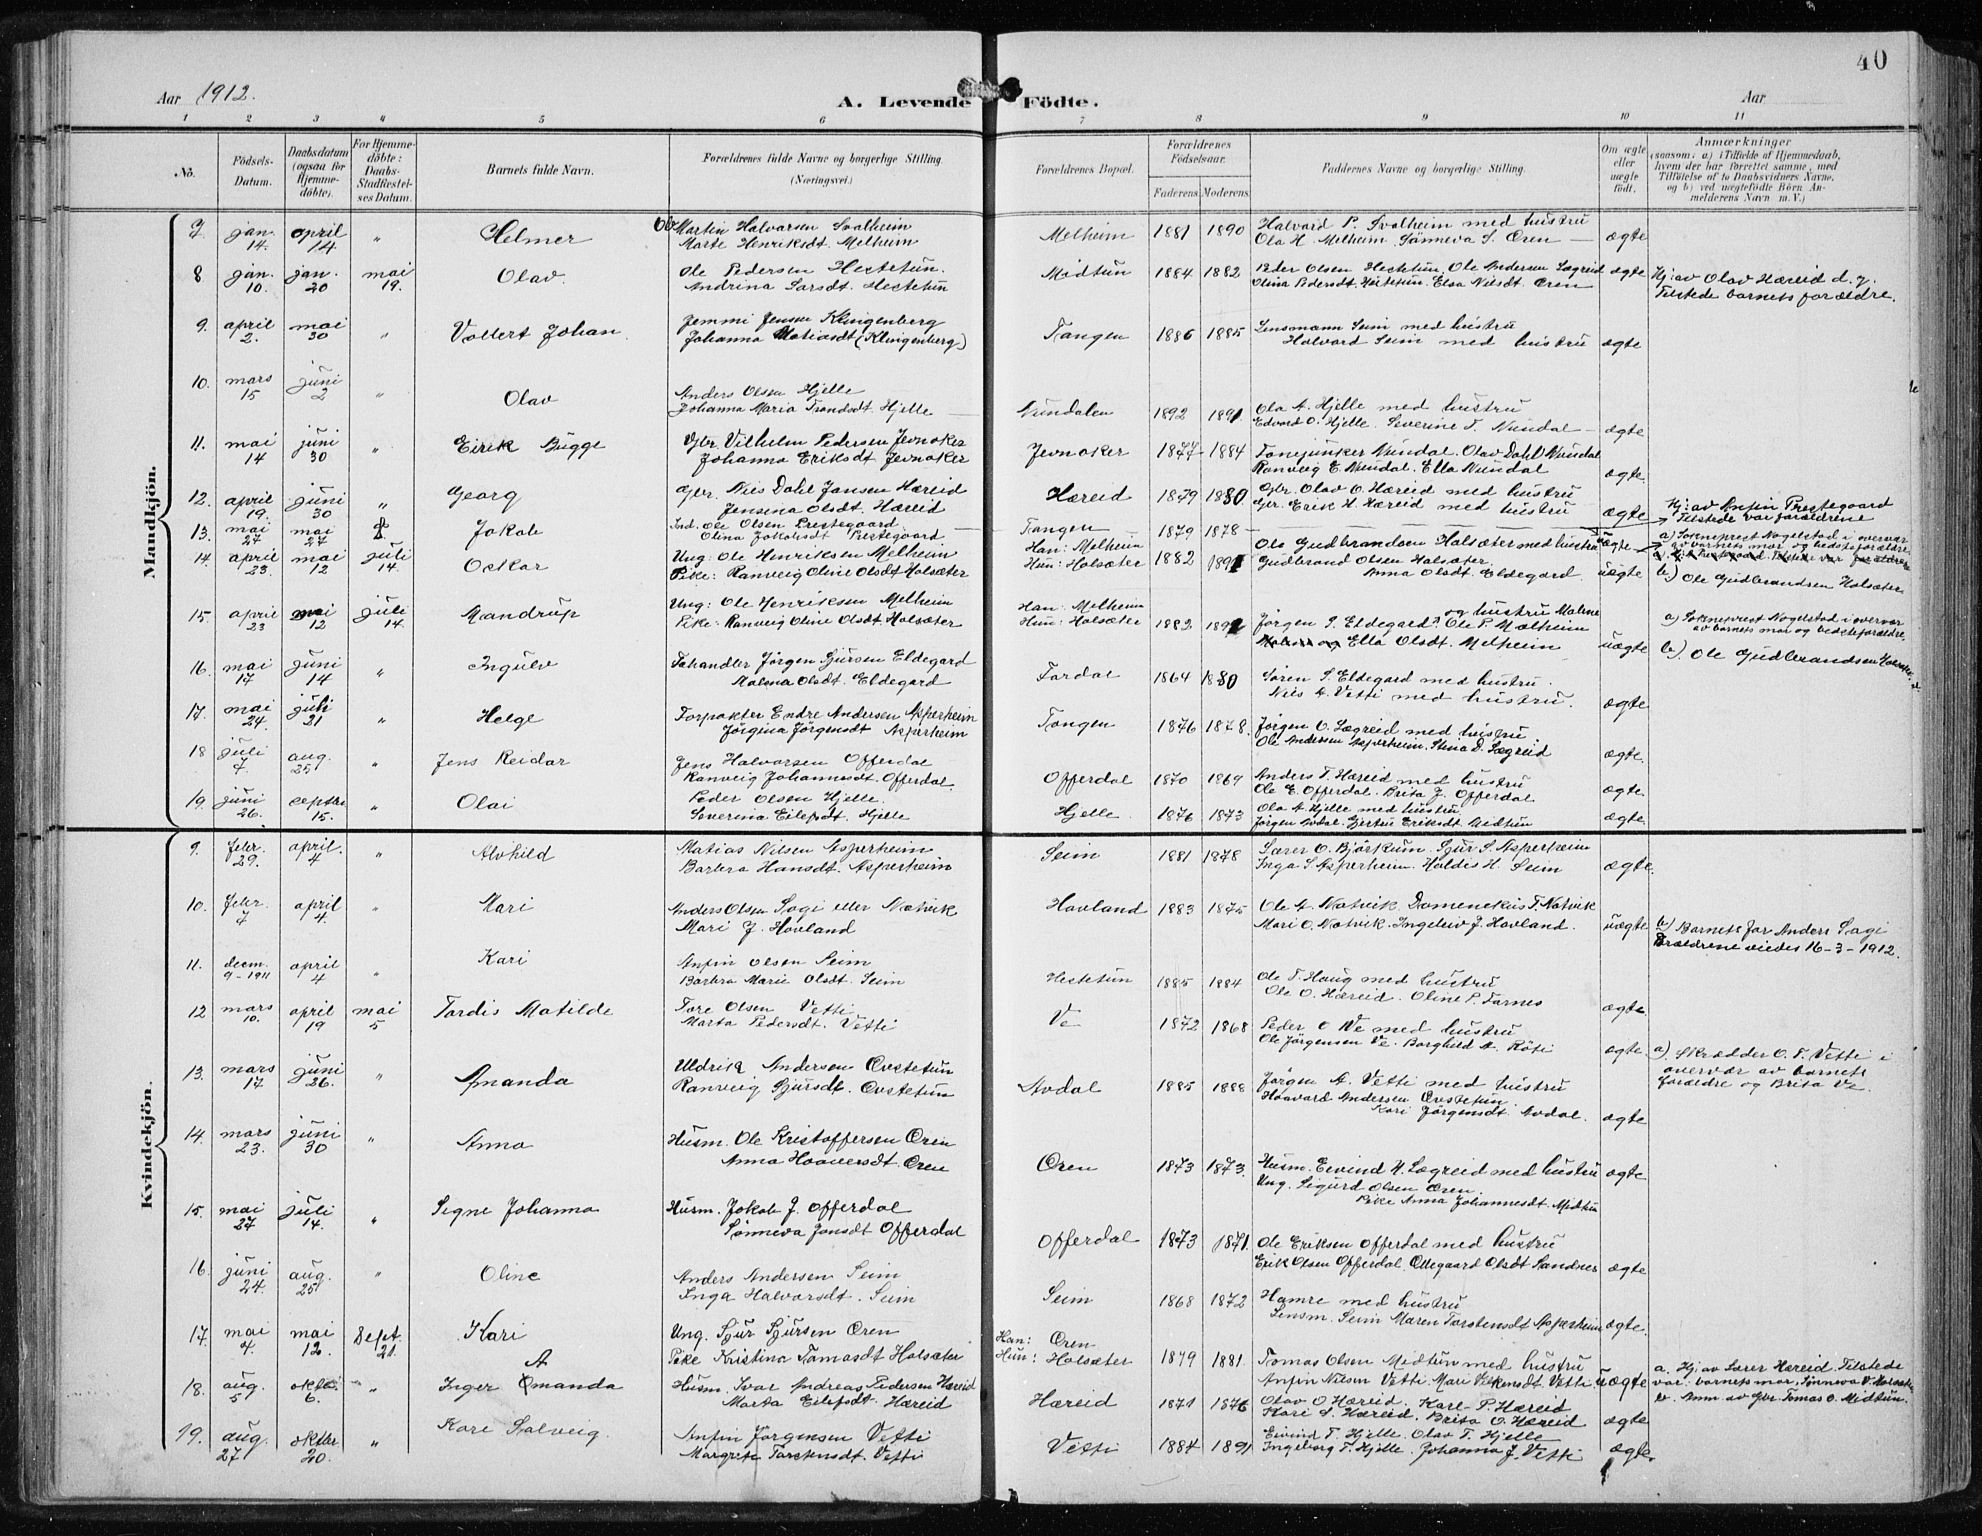 40
Aar 1912.
A. Levende Födte.
Aar
1 2 3 4 5 6 7 8 9 10 11
No.
Födsels-Datum.
Daabsdatum (ogsaa for Hjemme-döbte).
For Hjemme-döbte: Daabs-Stadfæstel-ses Datum.
Barnets fulde Navn.
Forældrenes fulde Navne og borgerlige Stilling. (Næringsvei.)
Forældrenes Bopæl.
Forældrenes Födselsaar.
Faderens. Moderens.
Faddernes Navne og borgerlige Stilling.
Om ægte eller uægte födt.
Anmærkninger (saasom: a) i Tilfælde af Hjemmedaab, hvem der har forrettet samme, med Tilföielse af to Daabsvidners Navne, og b) ved uægtefödte Börn An-melderens Navn m. V.)
Mandkjön.
7. jan. 14. april 14 " Helmer Martin Halvarsen Svalheim Melheim 1881 1890 Halvard P. Svalheim med hustru
Marte Henriksdt. Melheim Ola H. Melheim. Sönneva S. Øren — ægte
8 jan. 10. jan. 20 mai 19. Olav. Ole Pedersen Hestetun. Midtun 1884 1882 Peder Olsen Hestetun, Ole Andersen Lægreid ægte Hj: av Olav Hæreid d. y.
Andrina Larsdt. Hestetun Olina Pedersdt. Hestetun. Elsa Nilsdt. Øren Tilstede barnets forældre.
9. april 2. mai 30 " Vollert Johan. Jemmi Jensen Klingenberg Tangen 1886 1885 Lensmann Seim med hustru
Johanna Matiasdt (Klingenberg) Halvard Seim med hustru ægte
10. mars 15 juni 2 " Olav Anders Olsen Hjelle Nundalen 1892 1891 Ola A. Hjelle med hustru
Johanna Maria Trondsdt. Hjelle — Edvard O. Hjelle. Severine T. Nundal — ægte
11. mai 14 juni 30 " Eirik Bugge Gbr. Vilhelm Pedersen Jevnaker Jevnaker 1877 1884 Fanejunker Nundal. Olav Dahl Nundal
Johanna Eriksdt Jevnaker Ranveig E. Nundal. Ella Nundal ægte.
12. april 19. juni 30 " Georg Gbr. Nils Dahl Jansen Hæreid Hæreid 1879 1880 Gbr. Olav O. Hæreid med hustru
Jensina Olsdt. Hæreid Gbr. Erik H. Hæreid med hustru ægte
13. mai 27 mai 27 Jakob Ind. Ole Olsen Prestegaard Tangen 1879 1878 — ægte Hj: av Anfin Prestegaard
Olina Jakobsdt Prestegaard. Tilstede var forældrene
14. april 23. mai 12 juli 14. Oskar Ung: Ole Henriksen Melheim Han: Melheim 1882 1891 Ole Gudbrandsen Halsæter med hustru a) Sokneprest Nogelstad i overvær av barnets mor og bedsteforældre
Pike: Ranveig Oline Olsdt Halsæter Hun: Halsæter Gudbrand Olsen Halsæter. Anna Olsdt. Eldegard. uægte b) Ole Gudbrandsen Halsæter
15. april 23 mai 12 juli 14. Mandrup Ung: Ole Henriksen Melheim Han: Melheim 1882 1891 Jörgen S. Eldegard. Ole P. Mælheim og hustru Malene a) Sokneprest Nogelstad i overvær av barnets mor og bedsteforældre
Pike: Ranveig Oline Olsdt Halsæter Hun: Halsæter Ella Olsdt. Melheim uægte b) Ole Gudbrandsen
16. mai 17 juni 14 " Ingulv Fehandler Jörgen Sjursen Eldegard Fardal 1864 1880 Sören S. Eldegard med hustru.
Malena Olsdt. Eldegard Nils A. Vetti med hustru. ægte
17. mai 24. juli 21 " Helge Forpakter Endre Andersen Asperheim Tangen 1876 1878. Jörgen O. Lægreid med hustru
Jörgina Jörgensdt Asperheim Ole Andersen Asperheim. Stina D. Lægreid ægte
18 juli 7. aug. 25 " Jens Reidar Jens Halvorsen Offerdal Offerdal 1870 1869 Anders T. Hæreid med hustru
Ranveig Johannesdt. Offerdal. Ole E. Offerdal. Brita J. Offerdal ægte.
19. juni 26. septbr. 15. " Olai Peder Olsen Hjelle. Hjelle. 1876 1873 Ola A. Hjelle med hustru
Severina Eilefsdt. Hjelle Jörgen Avdal. Gjertru Eriksdt. Midtun ægte
Kvindekjön.
9. febr. 29. april 4 " Alvhild Matias Nilsen Asperheim Seim 1881 1878 Særer O. Björkum. Sjur S. Asperheim
Barbra Hansdt. Asperheim Inga S. Asperheim. Haldis H. Seim ægte.
10. febr. 7 april 4. " Mari Anders Olsen Sagi eller Natvik Havland 1883 1875 Ole A. Natvik Domenekus T. Natvik
Mari J. Hovland Mari O. Natvik. Ingeleiv J. Havland. uægte b) Barnets far Anders Sagi
Forældrene viedes 16-3-1912.
11. decm. 9-1911 april 4 " Kari Anfin Olsen Seim Hestetun 1885 1884 Ole T. Haug med hustru
Barbra Marie Olsdt. Seim Ole O. Hæreid. Oline P. Farnes ægte.
12 mars 10. april 19 mai 5 Tordis Matilde Tore Olsen Vetti Ve 1872 1868 Peder O. Ve med hustru
Marta Pedersdt. Vetti Ole Jörgensen Ve. Borghild A. Röti ægte. a) Skrædder O. T. Vetti i
overvær av barnets
forældre og Brita Ve.
13. mars 17 juni 26. " Amanda Uldrik Andersen Øvstetun Avdal 1885 1888 Jörgen A. Vetti med hustru
Ranveig Sjursdt. Øvstetun Haavard Andersen Øvstetun Kari Jörgensdt. Avdal. ægte
14. mars 23. juni 30 " Anna Husm. Ole Kristoffersen Øren Øren 1873 1873. Husm. Eivind H. Lægreid med hustru ægte
Anna Haaversdt. Øren Ung. Sigurd Olsen Øren. Pike Anna Johannesdt. Midtun
15. mai 27 juli 14. " Signe Johanna Husm. Jakob J. Offerdal Offerdal 1873 1871. Ole Eriksen Offerdal med hustru
Sönneva Jonsdt Offerdal Erik Olsen Offerdal. Ollegaard Olsdt Sandnes ægte
16. juni 24. aug. 25 " Oline Anders Andersen Seim Seim 1868 1872 Hamre med hustru
Inga Halvorsdt. Seim Lensm. Seim Maren Torstensdt Asperheim ægte.
17. mai 4. mai 12. Sept. 21. Kari Ung. Sjur Sjursen Øren Han: Øren
Pike Kristina Tomasdt Halsæter Hun: Halsæter 1879 1881. Tomas Olsen Midtun med hustru a. Hj: av Særer Hæreid. Tilstede
Anfin Nilsen Vetti. Mari Vetti uægte var: barnets mor, Sönneva
b. Anm av Gbr Tomas O. Midtun.
18. aug. 5 oktbr. 6. " Inger Amanda Husm. Ivar Andreas Pedersen Hæreid Hæreid 1871 1876 Olav O Hæreid. Karl P. Hæreid
Marta Eilefsdt. Hæreid Kari S. Hæreid. Brita O. Hæreid ægte
19. aug. 27 oktbr 20. " Kari Solveig. Anfin Jörgensen Vetti Vetti 1884 1891 Eivind T. Hjelle. Olav T. Hjelle
Margrete Torstensdt. Vetti Ingeborg T. Hjelle. Johanna J. Vetti ægte.